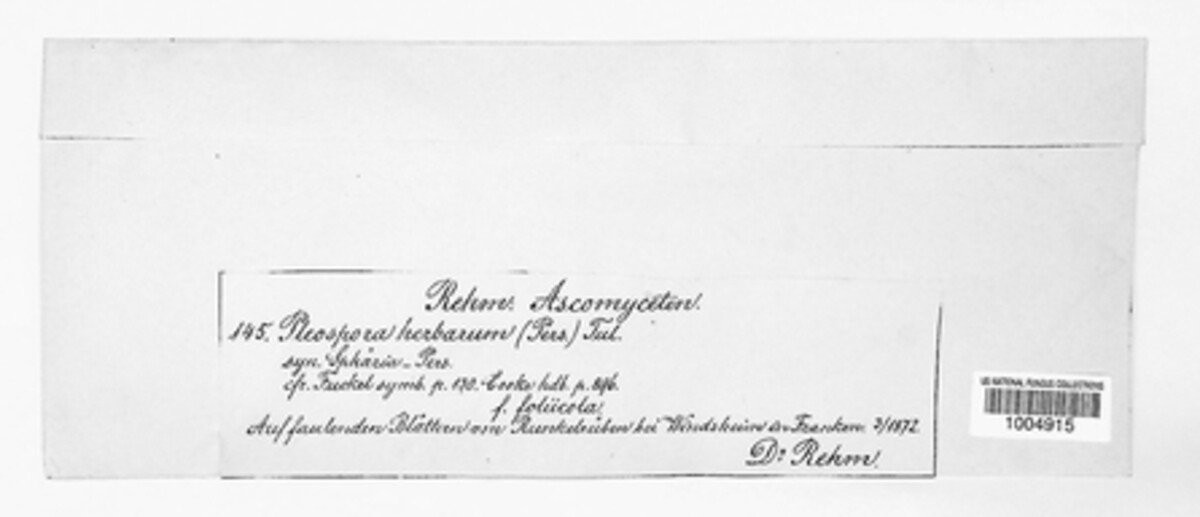 Rehm: Ascomyceten.
145. Pleospora herbarum (Pers.) Tul.
syn. Sphäria – Pers.
cfr. Fuckel symb. p. 130. Cooke hdb. p. 896.
f. foliicola.
Auf faulenden Blättern von Runkelrüben bei Windsheim in Franken. 3/1872
Dr Rehm.
US NATIONAL FUNGUS COLLECTIONS
1004915